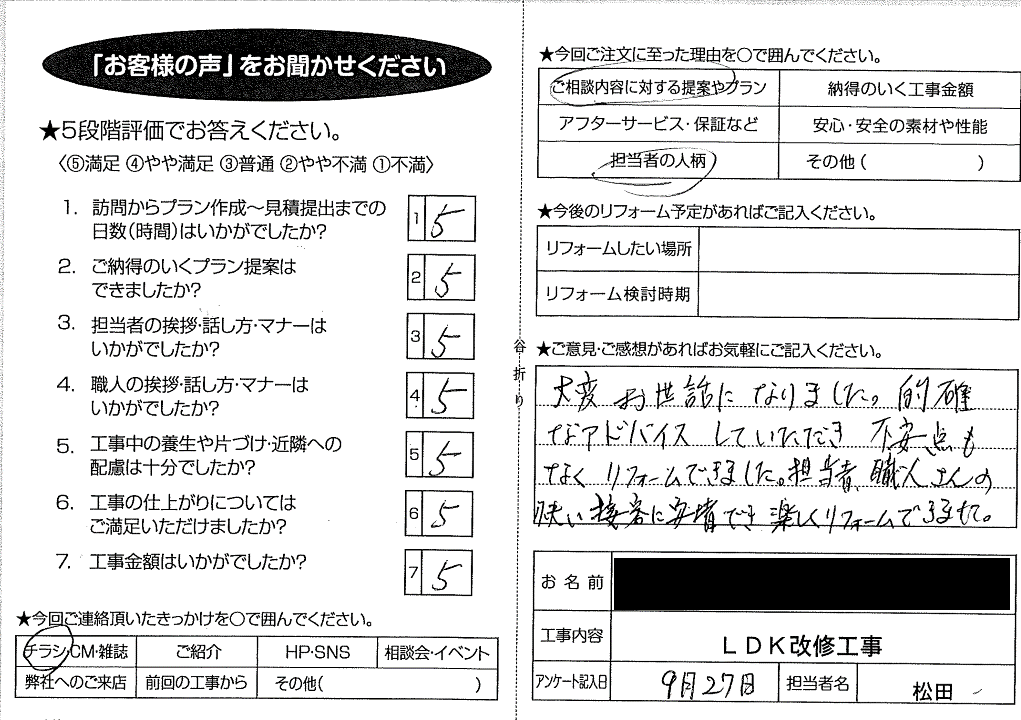 「お客様の声」をお聞かせください
★5段階評価でお答えください。
〈⑤満足 ④やや満足 ③普通 ②やや不満 ①不満〉
1. 訪問からプラン作成～見積提出までの
日数(時間)はいかがでしたか?
1 5
2. ご納得のいくプラン提案は
できましたか?
2 5
3. 担当者の挨拶・話し方・マナーは
いかがでしたか?
3 5
4. 職人の挨拶・話し方・マナーは
いかがでしたか?
4 5
5. 工事中の養生や片づけ・近隣への
配慮は十分でしたか?
5 5
6. 工事の仕上がりについては
ご満足いただけましたか?
6 5
7. 工事金額はいかがでしたか?
7 5
★今回ご連絡頂いたきっかけを○で囲んでください。
チラシ・CM・雑誌 ご紹介 HP・SNS 相談会・イベント
弊社へのご来店 前回の工事から その他( )
谷折り
★今回ご注文に至った理由を○で囲んでください。
ご相談内容に対する提案やプラン 納得のいく工事金額
アフターサービス・保証など 安心・安全の素材や性能
担当者の人柄 その他( )
★今後のリフォーム予定があればご記入ください。
リフォームしたい場所
リフォーム検討時期
★ご意見・ご感想があればお気軽にご記入ください。
大変お世話になりました。的確
なアドバイスしていただき不安点も
なくリフォームできました。担当者、職人さんの
い接客に安堵でき楽しくリフォームできました。
お名前
工事内容 LDK改修工事
アンケート記入日 9月27日 担当者名 松田